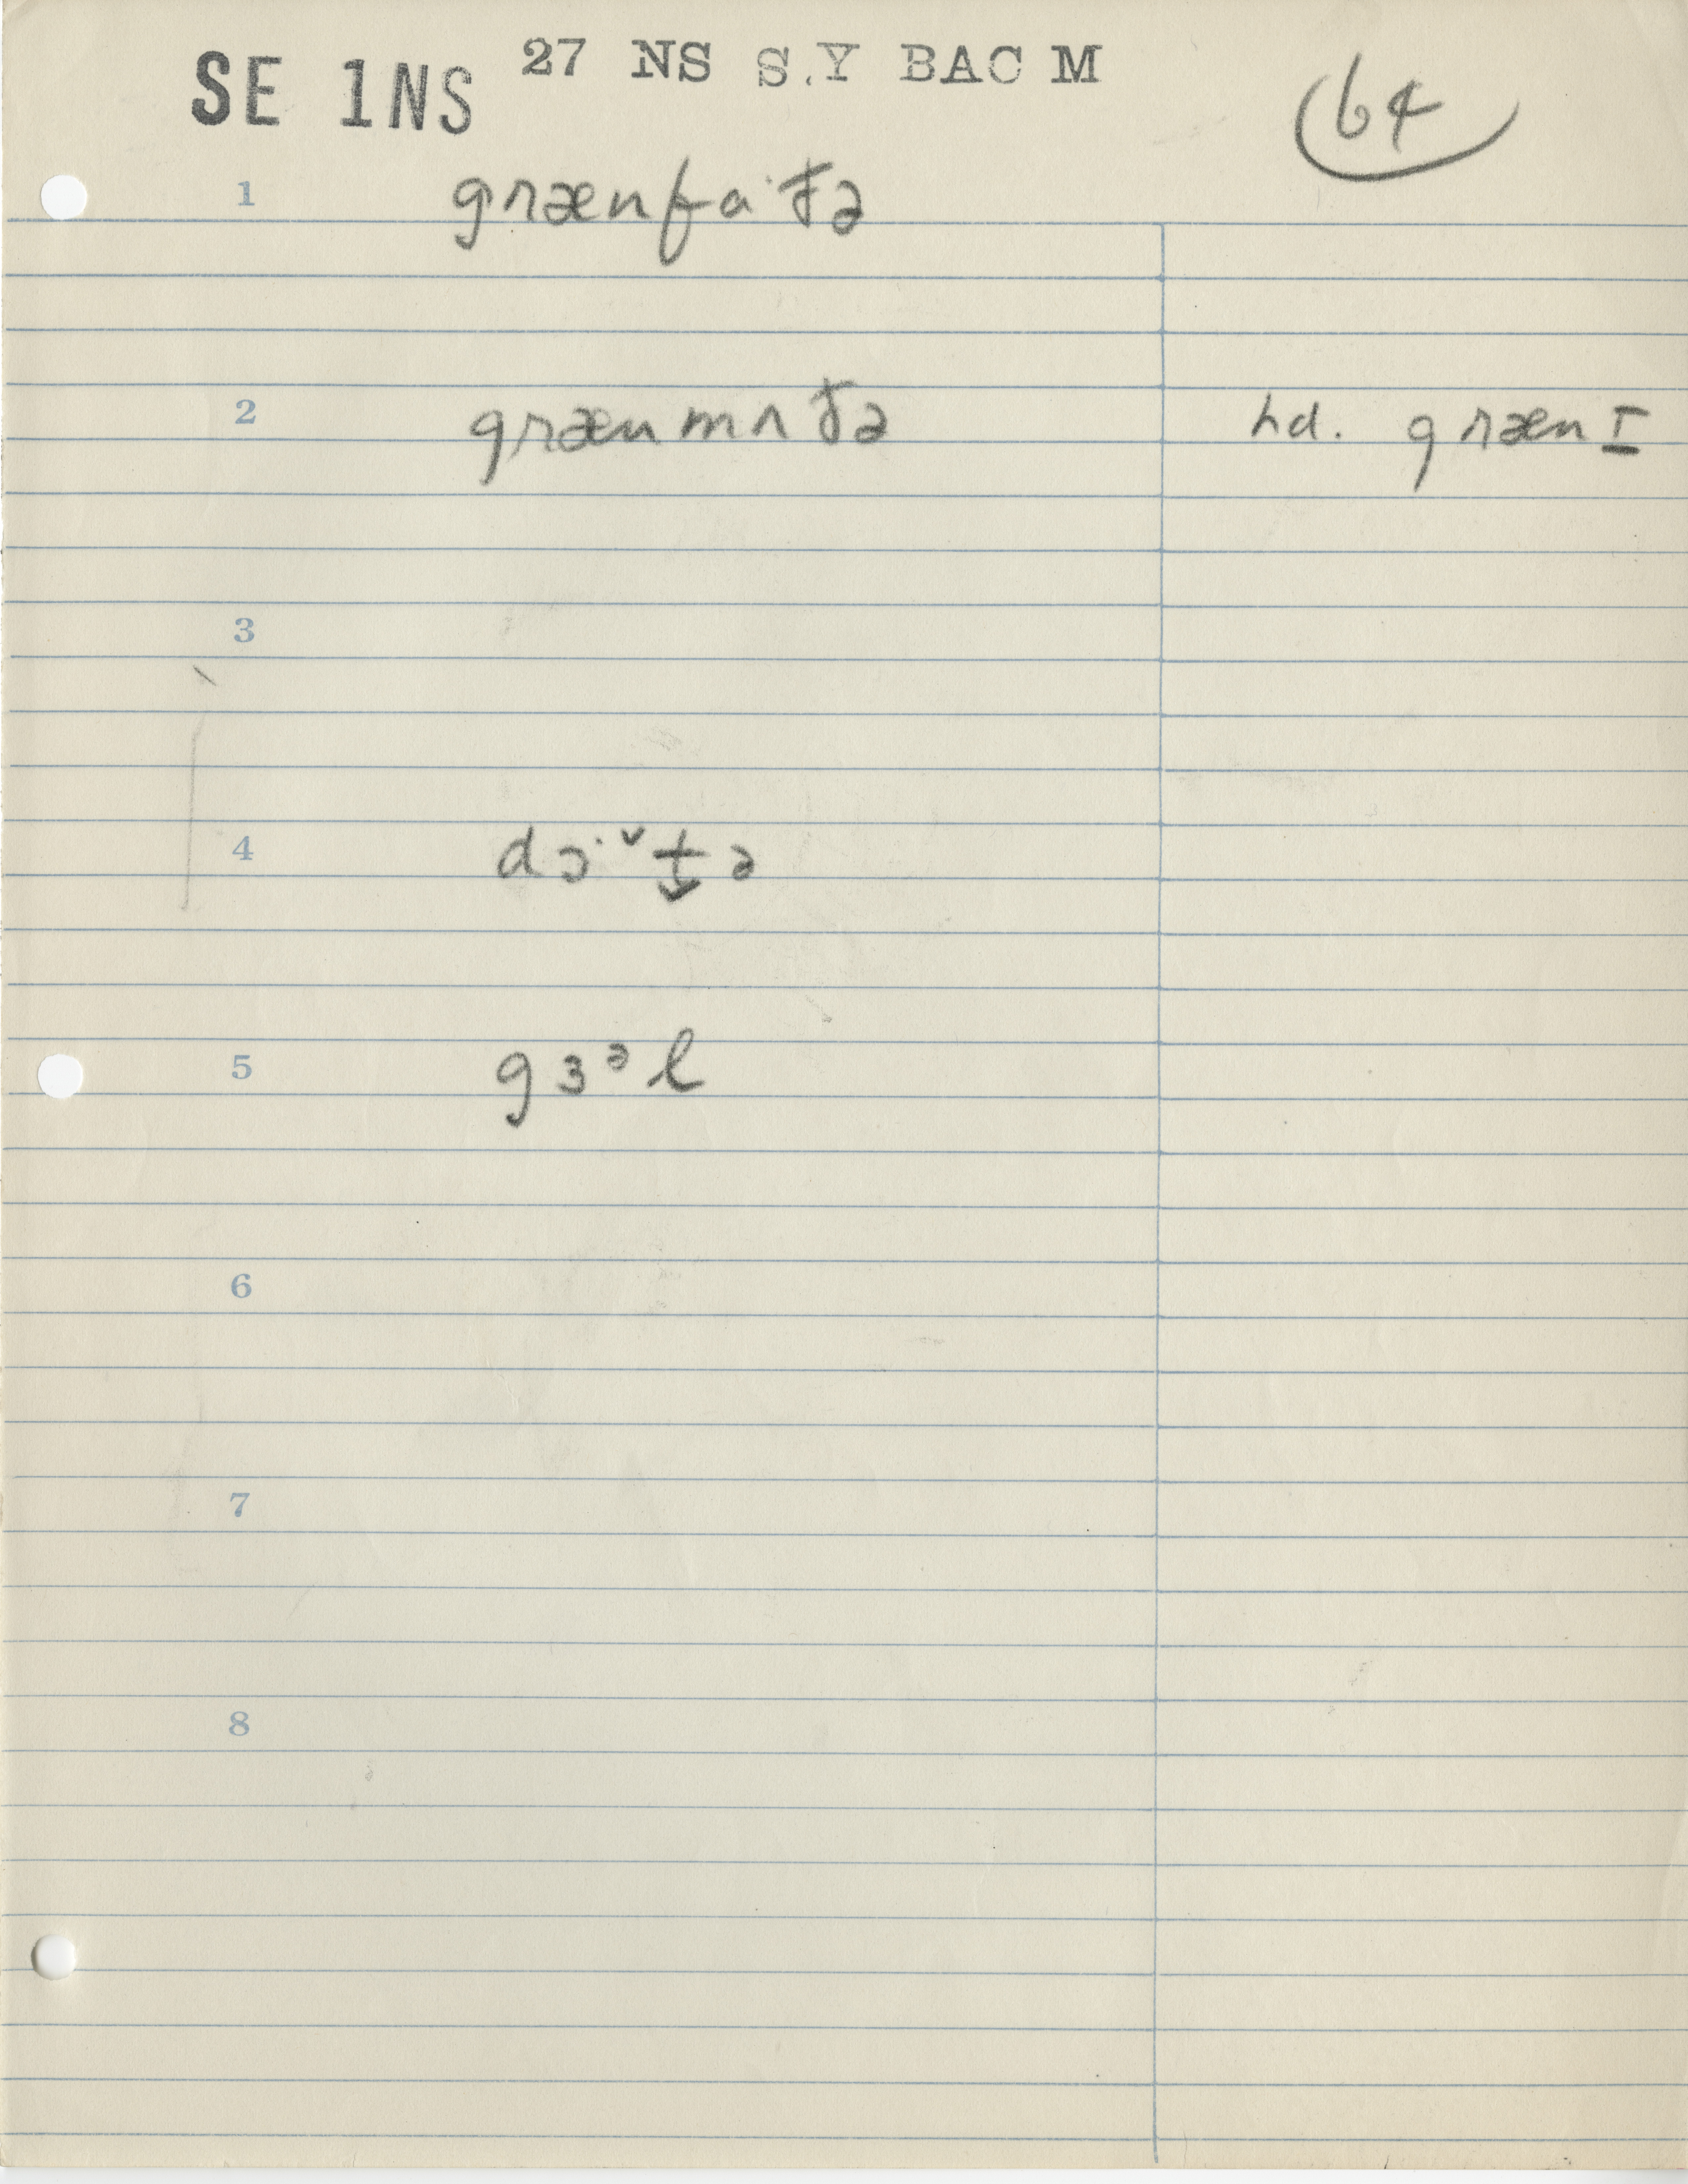 SE 1NS 27 NS S.Y BAC M
64
1 grænfa·ðə
2 grænmʌðə hd. grænɪ
3
4 dɔ·ˇt̬ə
5 gɜᵊl
6
7
8